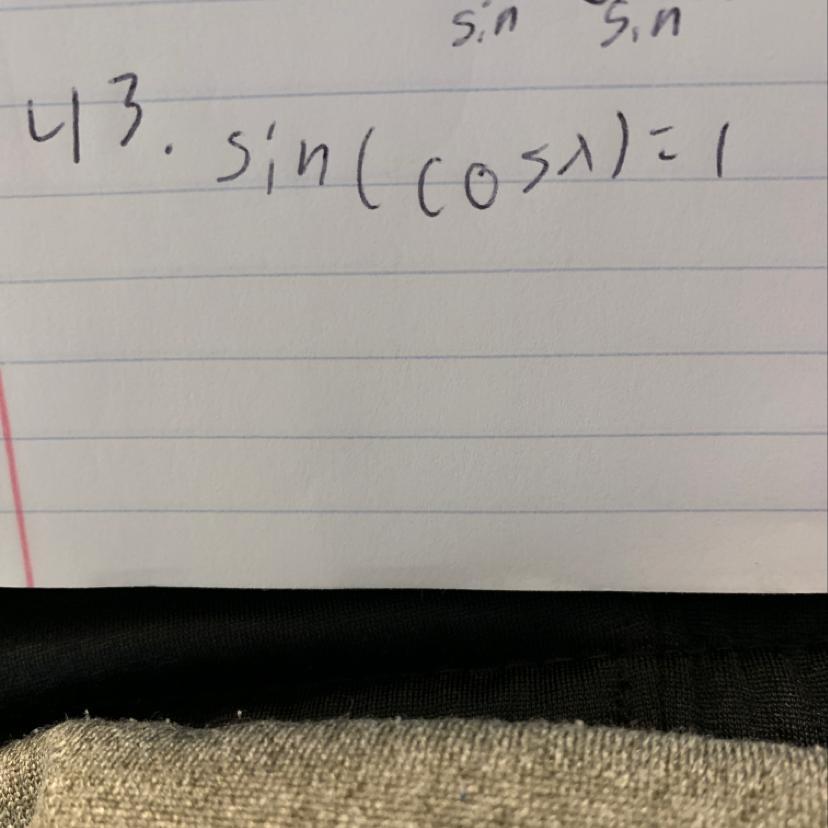 sin sin
43. sin(cosx)=1